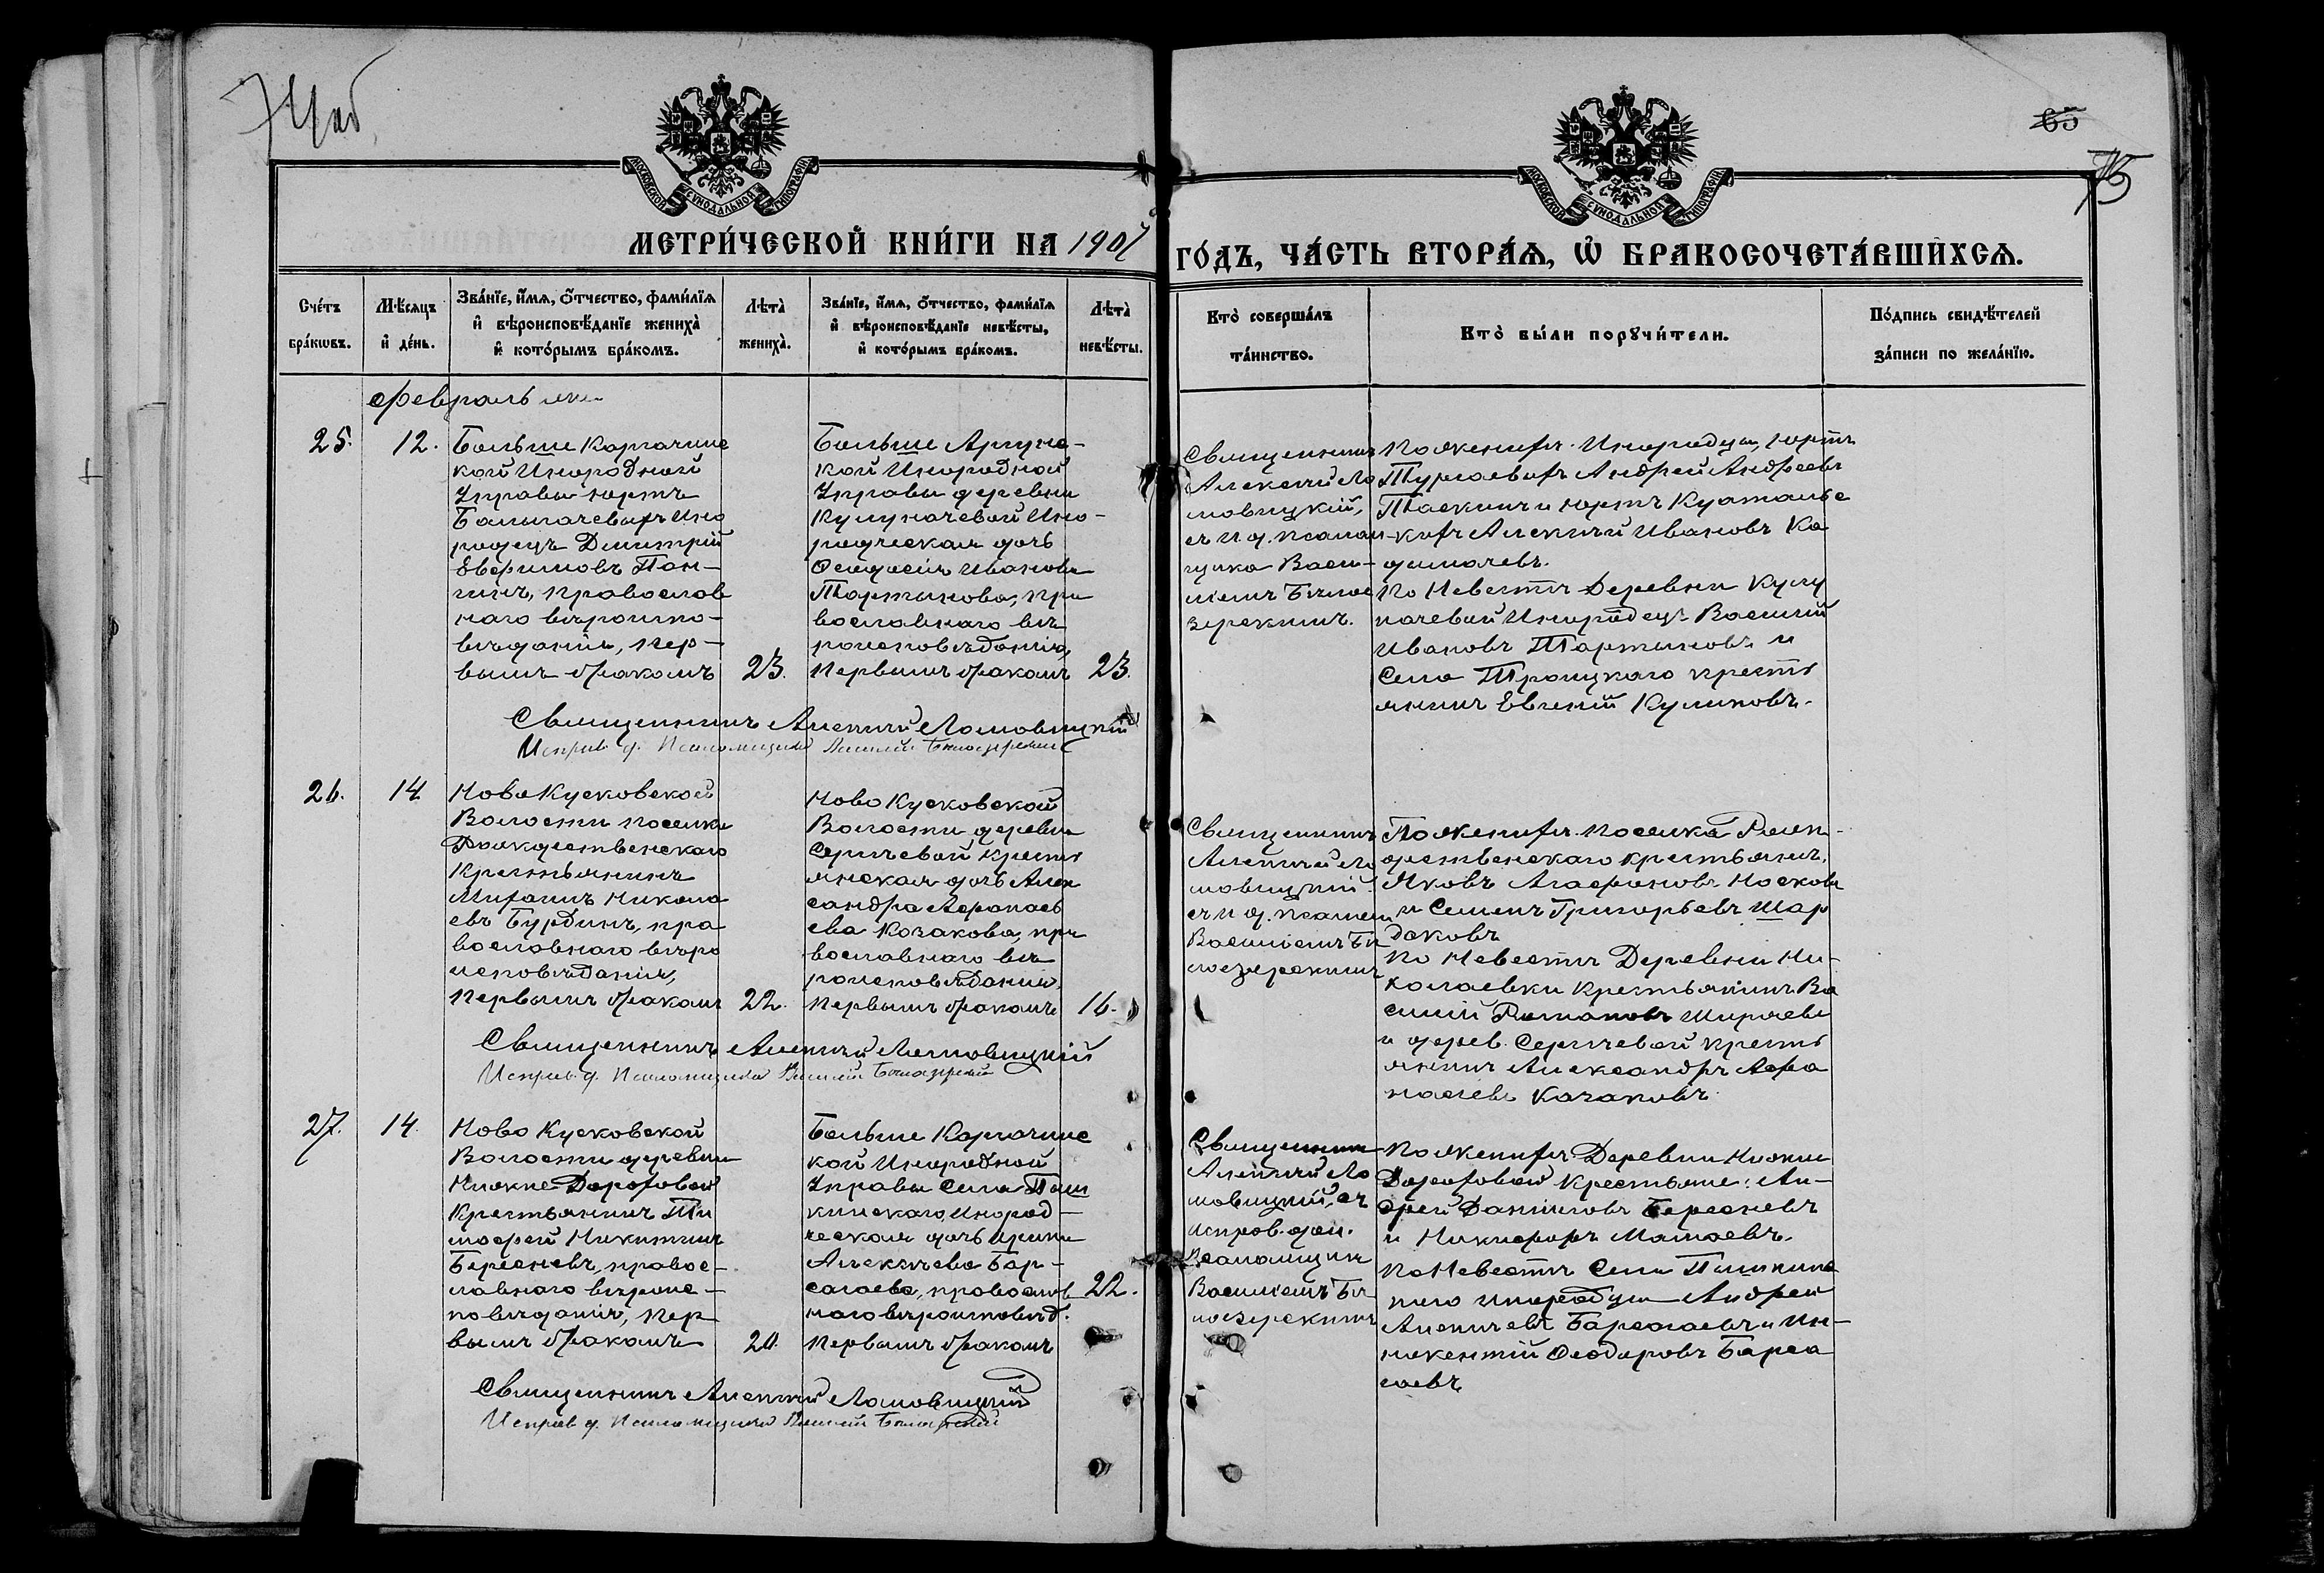 74об
65
75
МОСКОВСКОЙ СѴНОДАЛЬНОЙ ТИПОГРАФІИ
МОСКОВСКОЙ СѴНОДАЛЬНОЙ ТИПОГРАФІИ
МЕТРИ́ЧЕСКОЙ КНИ́ГИ НА 1907
ГО́ДЪ, ЧА́СТЬ ВТОРА́Ѧ, Ѽ БРАКОСОЧЕТА́ВШИХСѦ.
Сче́тъ бра́кѡвъ.
Мѣ́сяцъ и де́нь.
Зва́нїе, и́мѧ, о́тчество, фами́лїѧ и вѣроисповѣ́данїе жениха̀ и кото́рымъ бра́комъ.
Лѣта̀ жениха̀.
Зва́нїе, и́мѧ, о́тчество, фами́лїѧ и вѣроисповѣ́данїе невѣ́сты, и кото́рымъ бра́комъ.
Лѣта̀ невѣ́сты.
Кто̀ соверша́лъ та́инство.
Кто̀ бы́ли порꙋчи́тели.
По́дпись свидѣ́телей за́писи по жела́нїю.
Февраль
25.
12.
Больше Каргачинс
кой Инородной
Управы юртъ
Балагачевыхъ Ино
родецъ Димитрій
Евфимовъ Пан-
гинъ, православ
наго вѣроиспо-
вѣданія, пер-
вымъ бракомъ
23.
Больше Аргунс-
кой Инородной
Управы деревни
Кулуначевой Ино-
родческая дочь
Ѳеодосія Иванова
Тартынова, пра
вославнаго вѣ
роисповѣданія,
первымъ бракомъ
23.
Священникъ
Алексій Ло
мовицкій,
съ и д. псалом
щика Васи-
ліемъ Бѣлое
зерскимъ.
По женихѣ. Инородцы, юртъ
Тургаевыхъ Андрей Андреевъ
Таскинъ и юртъ Куяталье
кихъ Алексѣй Ивановъ Ка
димачевъ.
По Невестѣ Деревни Кулу
начевой Инородецъ Василій
Ивановъ Тартыновъ и
Села Троицкаго кресть
янинъ Евгеній Куликовъ.
Священникъ Алексій Ломовицкій
Исправ. д. Псаломщика Василій Бѣлозерскій
26.
14
Ново Кусковской
Волости поселка
Рождественскаго
Крестьянинъ
Михаилъ Никола
евъ Бурдинъ, пра
вославнаго вѣро
исповѣданія,
первымъ бракомъ
22.
Ново Кусковской
Волости деревни
Сергѣевой кресть
янская дочь Алек
сандра Афанась
ева Казакова, пра
вославнаго вѣ
роисповѣданія,
первымъ бракомъ
16.
Священникъ
Алексій Ло
мовицкій
съ и д. псаломщ
Василіемъ Бѣ
лозерскимъ
По женихѣ. поселка Рож-
дественскаго крестьянинъ.
Яковъ Агафоновъ Носковъ
и Семенъ Григорьевъ Шар
даковъ
По Невестѣ Деревни Ни-
колаевки Крестьянинъ Ва
силій Романовъ Ширяевъ
и дерев. Сергѣевой кресть
янинъ Александръ Афа
насьевъ Казаковъ
Священникъ Алексій Ломовицкій
Исправ. д. Псаломщика Василій Бѣлозерскій
27.
14.
Ново Кусковской
Волости деревни
Нижне-Дороховой
Крестьянинъ Ти
мофей Никитинъ
Берсеневъ, правос-
лавнаго вѣроис-
повѣданія, пер
вымъ бракомъ
20.
Больше Каргачинс
кой Инородной
Управы Села Паш
кинскаго, инород-
ческая дочь Ирина
Алексѣева Бар-
сагаева, православ
наго вѣроисповѣд.
первымъ бракомъ
22.
Священникъ
Алексій Ло
мовицкій, съ
исправ. дол.
Псаломщик
Василіемъ Бѣ
лозерскимъ
По женихѣ Деревни Нижне
Дороховой Крестьяне: Ан-
дрей Даниловъ Берсеневъ
и Никифоръ Мамаевъ.
По Невестѣ Села Пашкинс
каго инородцы Андрей
Алексѣевъ Барсагаевъ и Ин-
нокентій Ѳеодоровъ Барса
гаевъ
Священникъ Алексій Ломовицкій
Исправ. д. Псаломщика Василій Бѣлозерскій